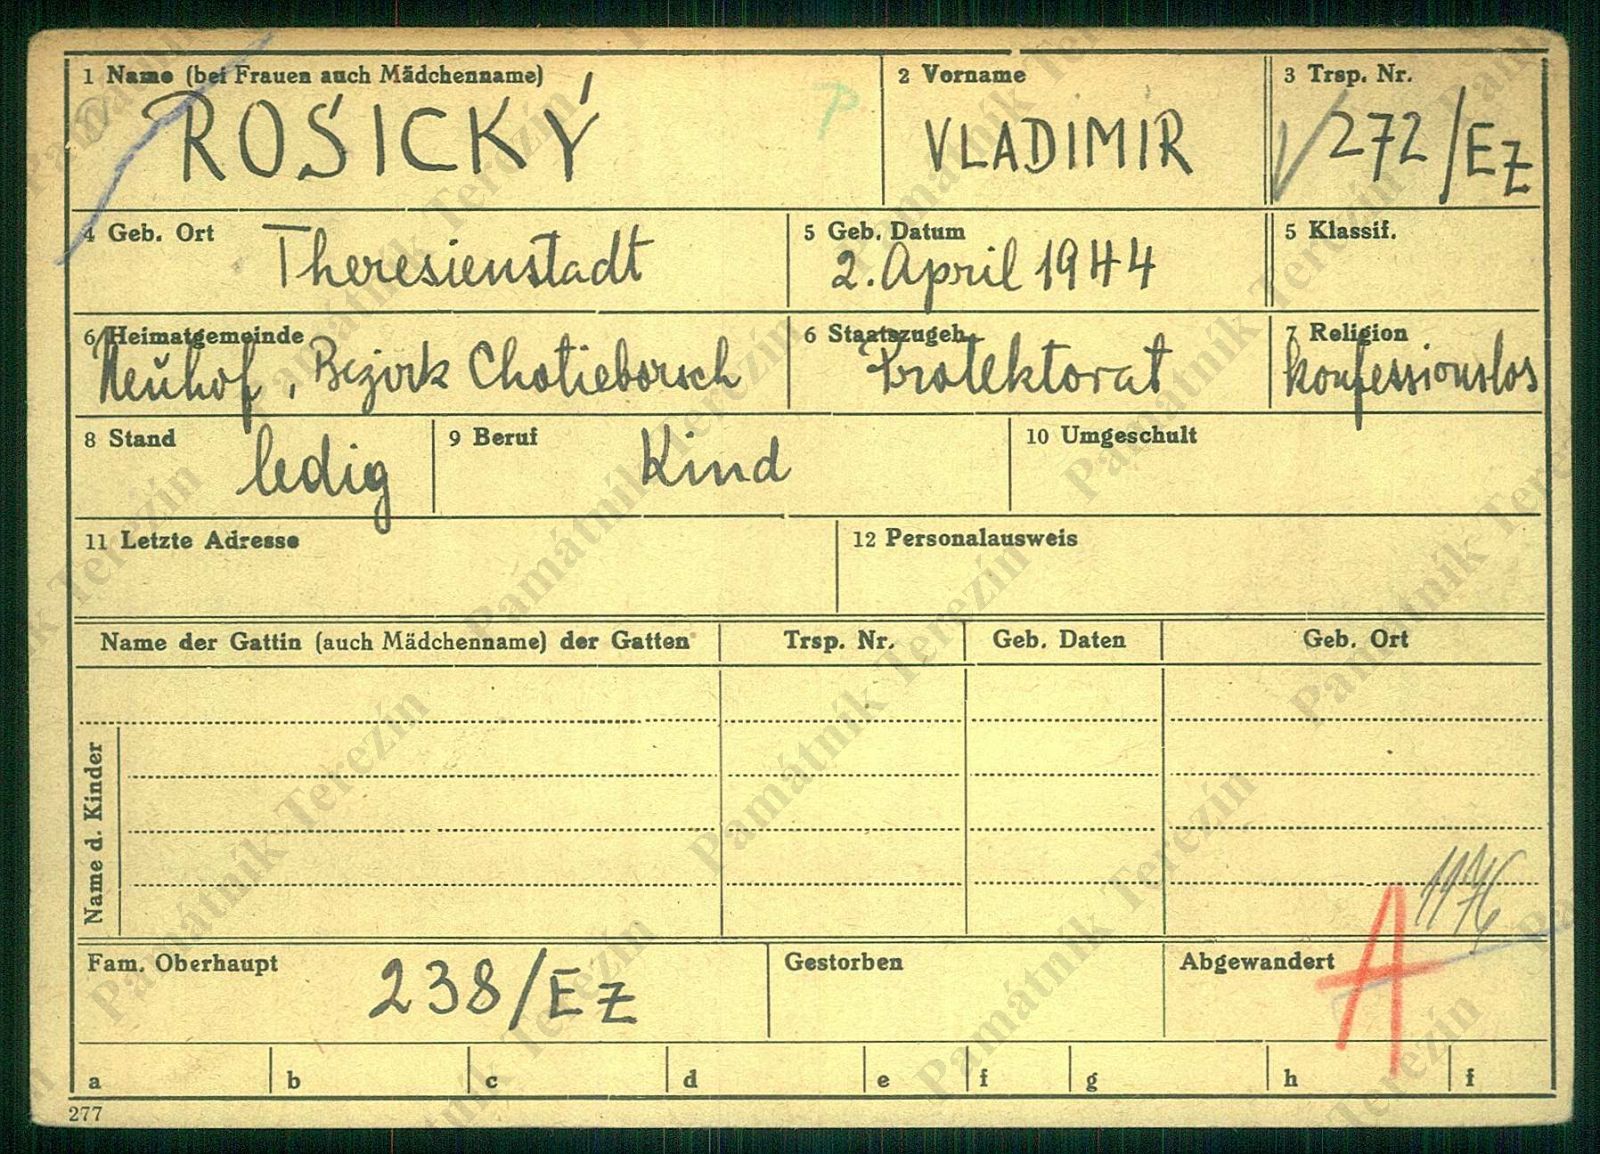 1 Name (bei Frauen auch Mädchenname)
ROSICKÝ
P
2 Vorname
VLADIMIR
3 Trsp. Nr.
272/Ez
4 Geb. Ort
Theresienstadt
5 Geb. Datum
2. April 1944
5 Klassif.
6 Heimatgemeinde
Neuhof, Bezirk Chotieborsch
6 Staatszugeh.
Protektorat
7 Religion
konfessionslos
8 Stand
ledig
9 Beruf
Kind
10 Umgeschult
11 Letzte Adresse
12 Personalausweis
Name der Gattin (auch Mädchenname) der Gatten
Trsp. Nr.
Geb. Daten
Geb. Ort
Name d. Kinder
1176
Fam. Oberhaupt
238/Ez
Gestorben
Abgewandert
A
a b c d e f g h f
277
Památník Terezín